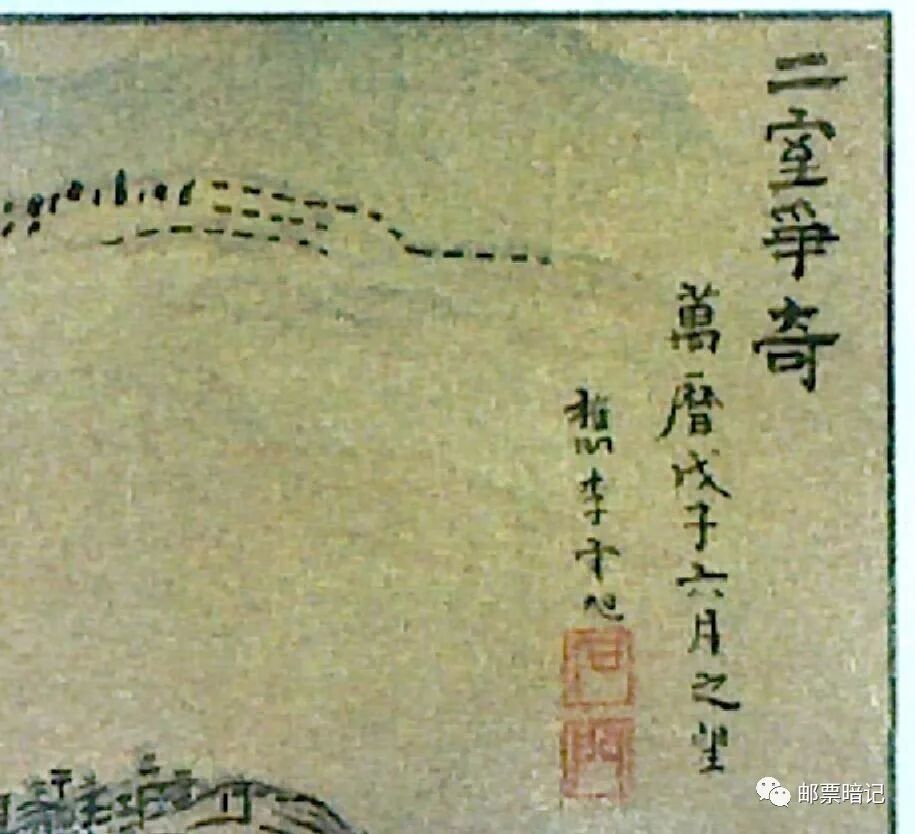 二室争奇
萬曆戊子六月之望
李
邮票暗记